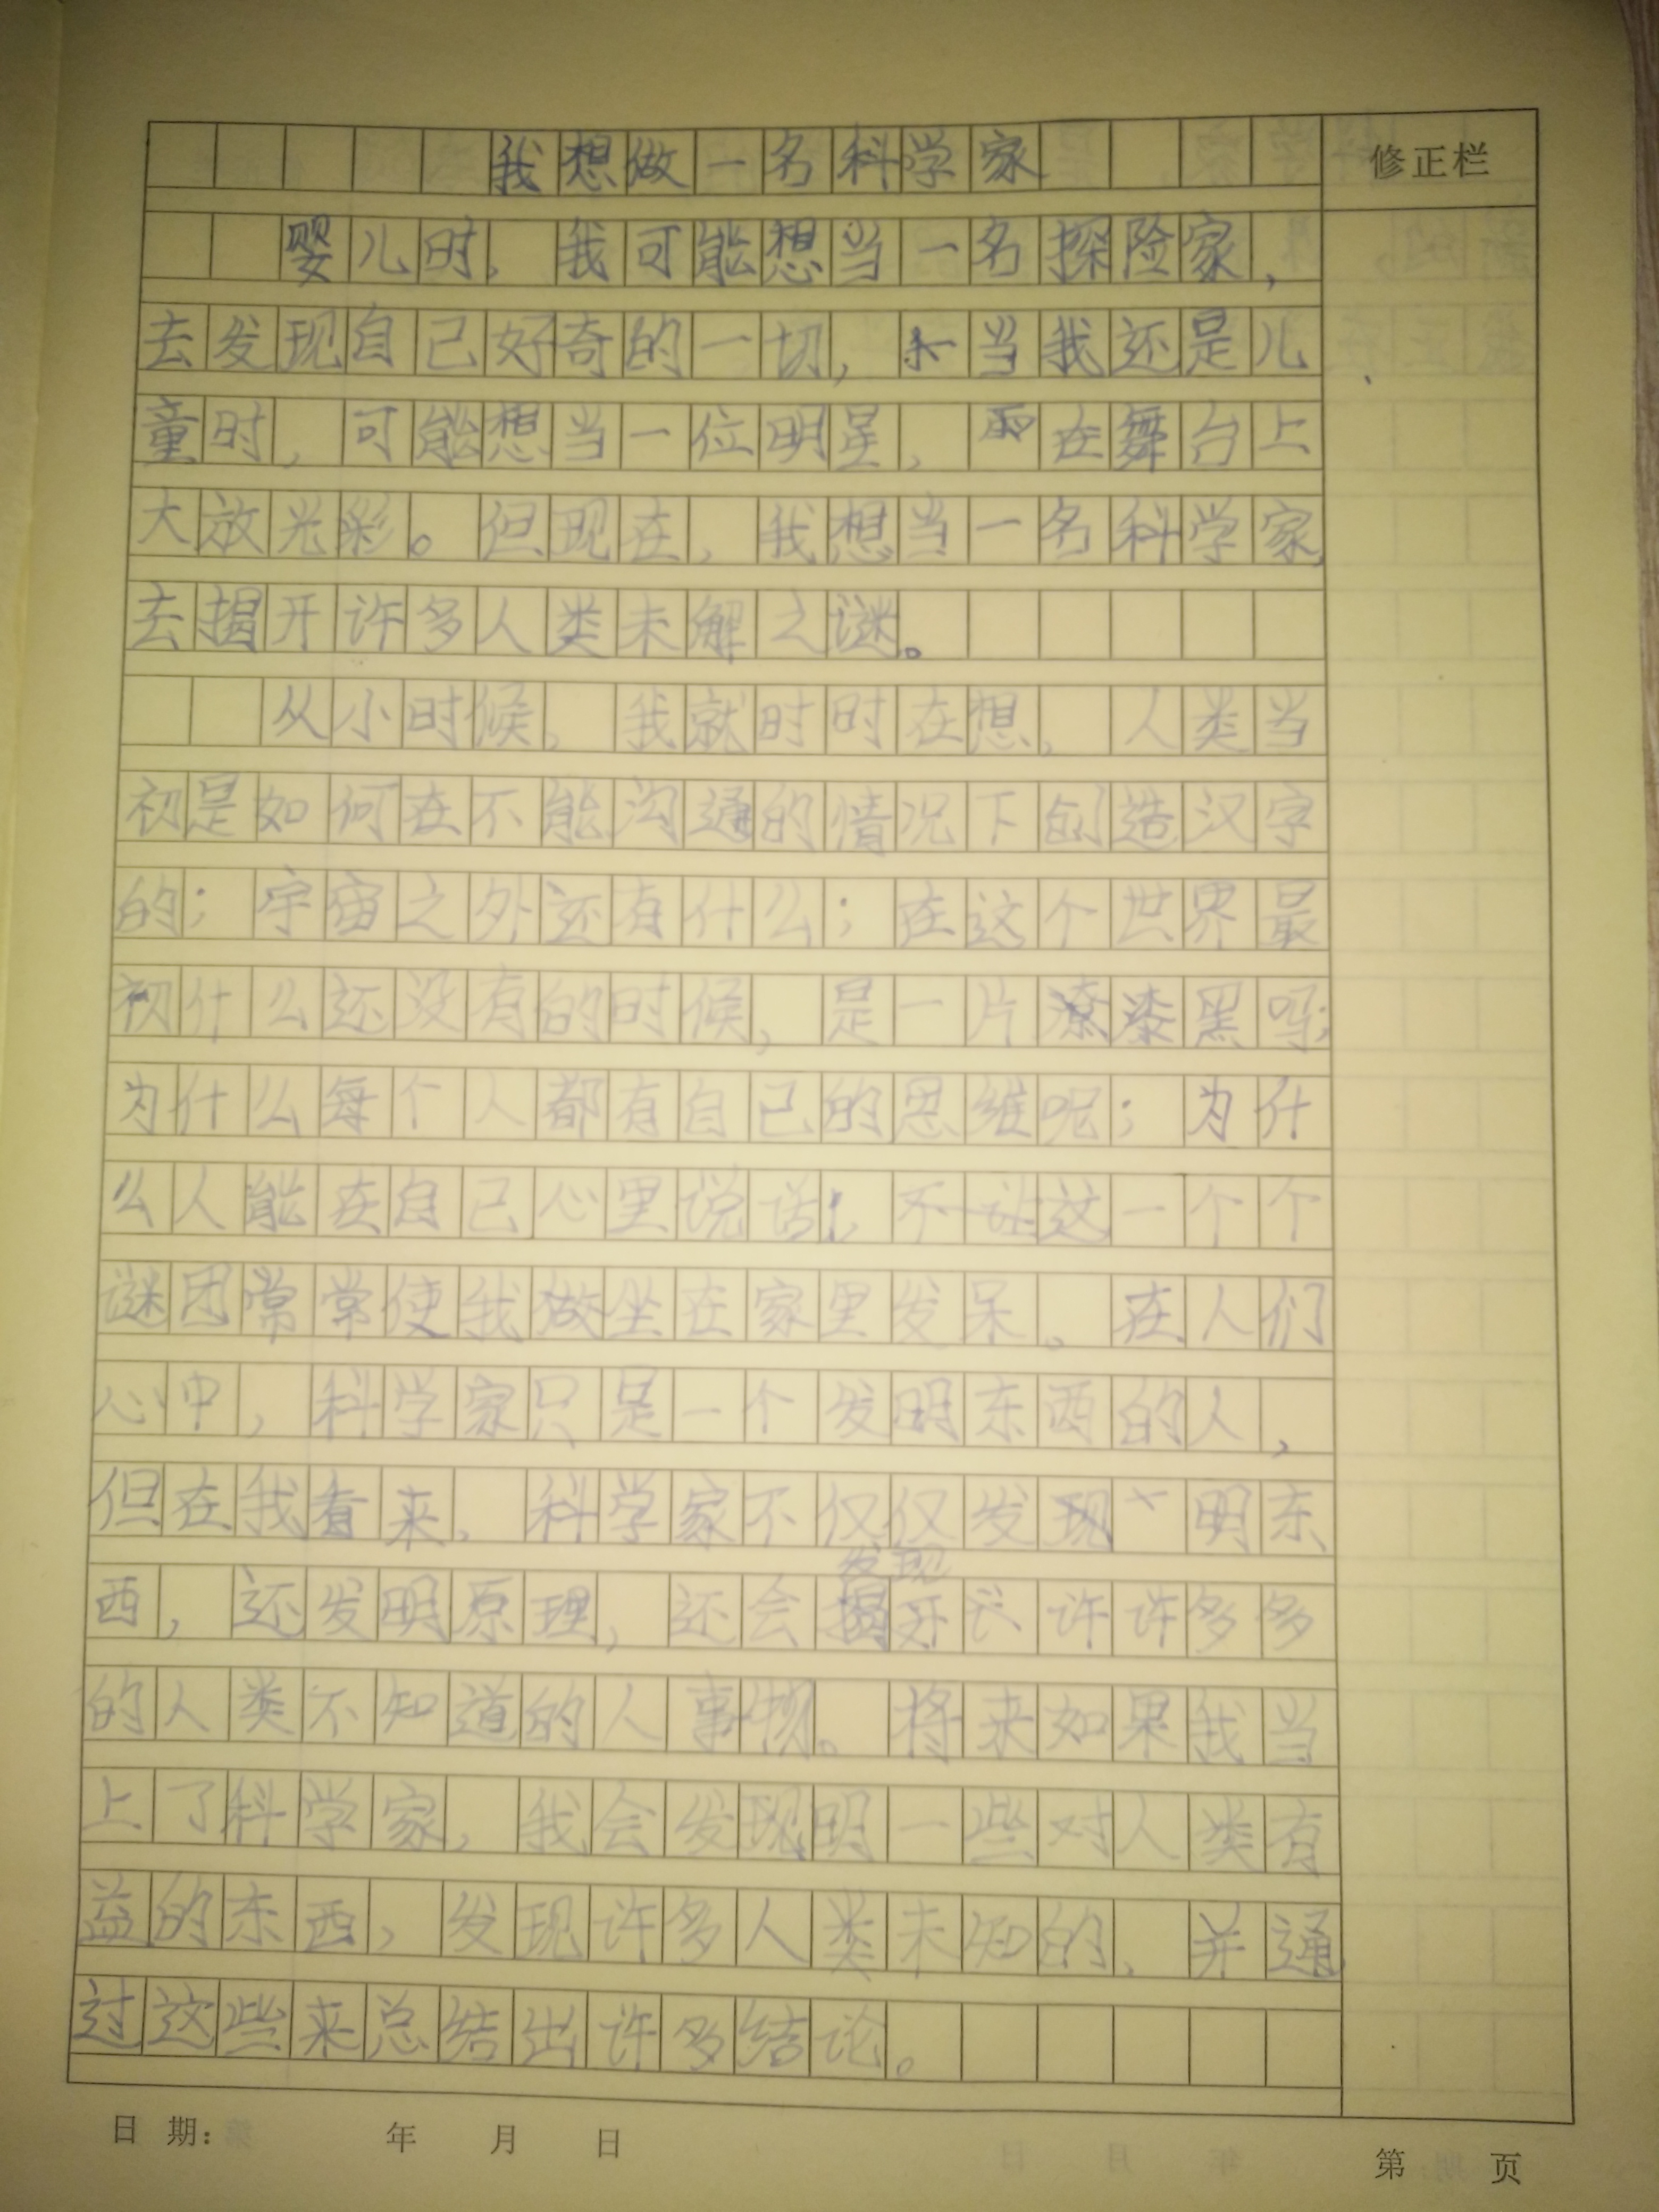 我想做一名科学家
修正栏
婴儿时，我可能想当一名探险家，
去发现自己好奇的一切，当我还是儿
童时，可能想当一位明星，在舞台上
大放光彩。但现在，我想当一名科学家，
去揭开许多人类未解之谜。
从小时候，我就时时在想，人类当
初是如何在不能沟通的情况下创造汉字
的；宇宙之外还有什么；在这个世界最
初什么还没有的时候，是一片漆黑吗；
为什么每个人都有自己的思维呢；为什
么人能在自己心里说话；这一个个
谜团常常使我坐在家里发呆。在人们
心中，科学家只是一个发明东西的人，
但在我看来，科学家不仅仅发明东
西，还发明原理，还会发现许许多多
的人类不知道的事物。将来如果我当
上了科学家，我会发明一些对人类有
益的东西，发现许多人类未知的，并通
过这些来总结出许多结论。
日期： 年 月 日
第 页